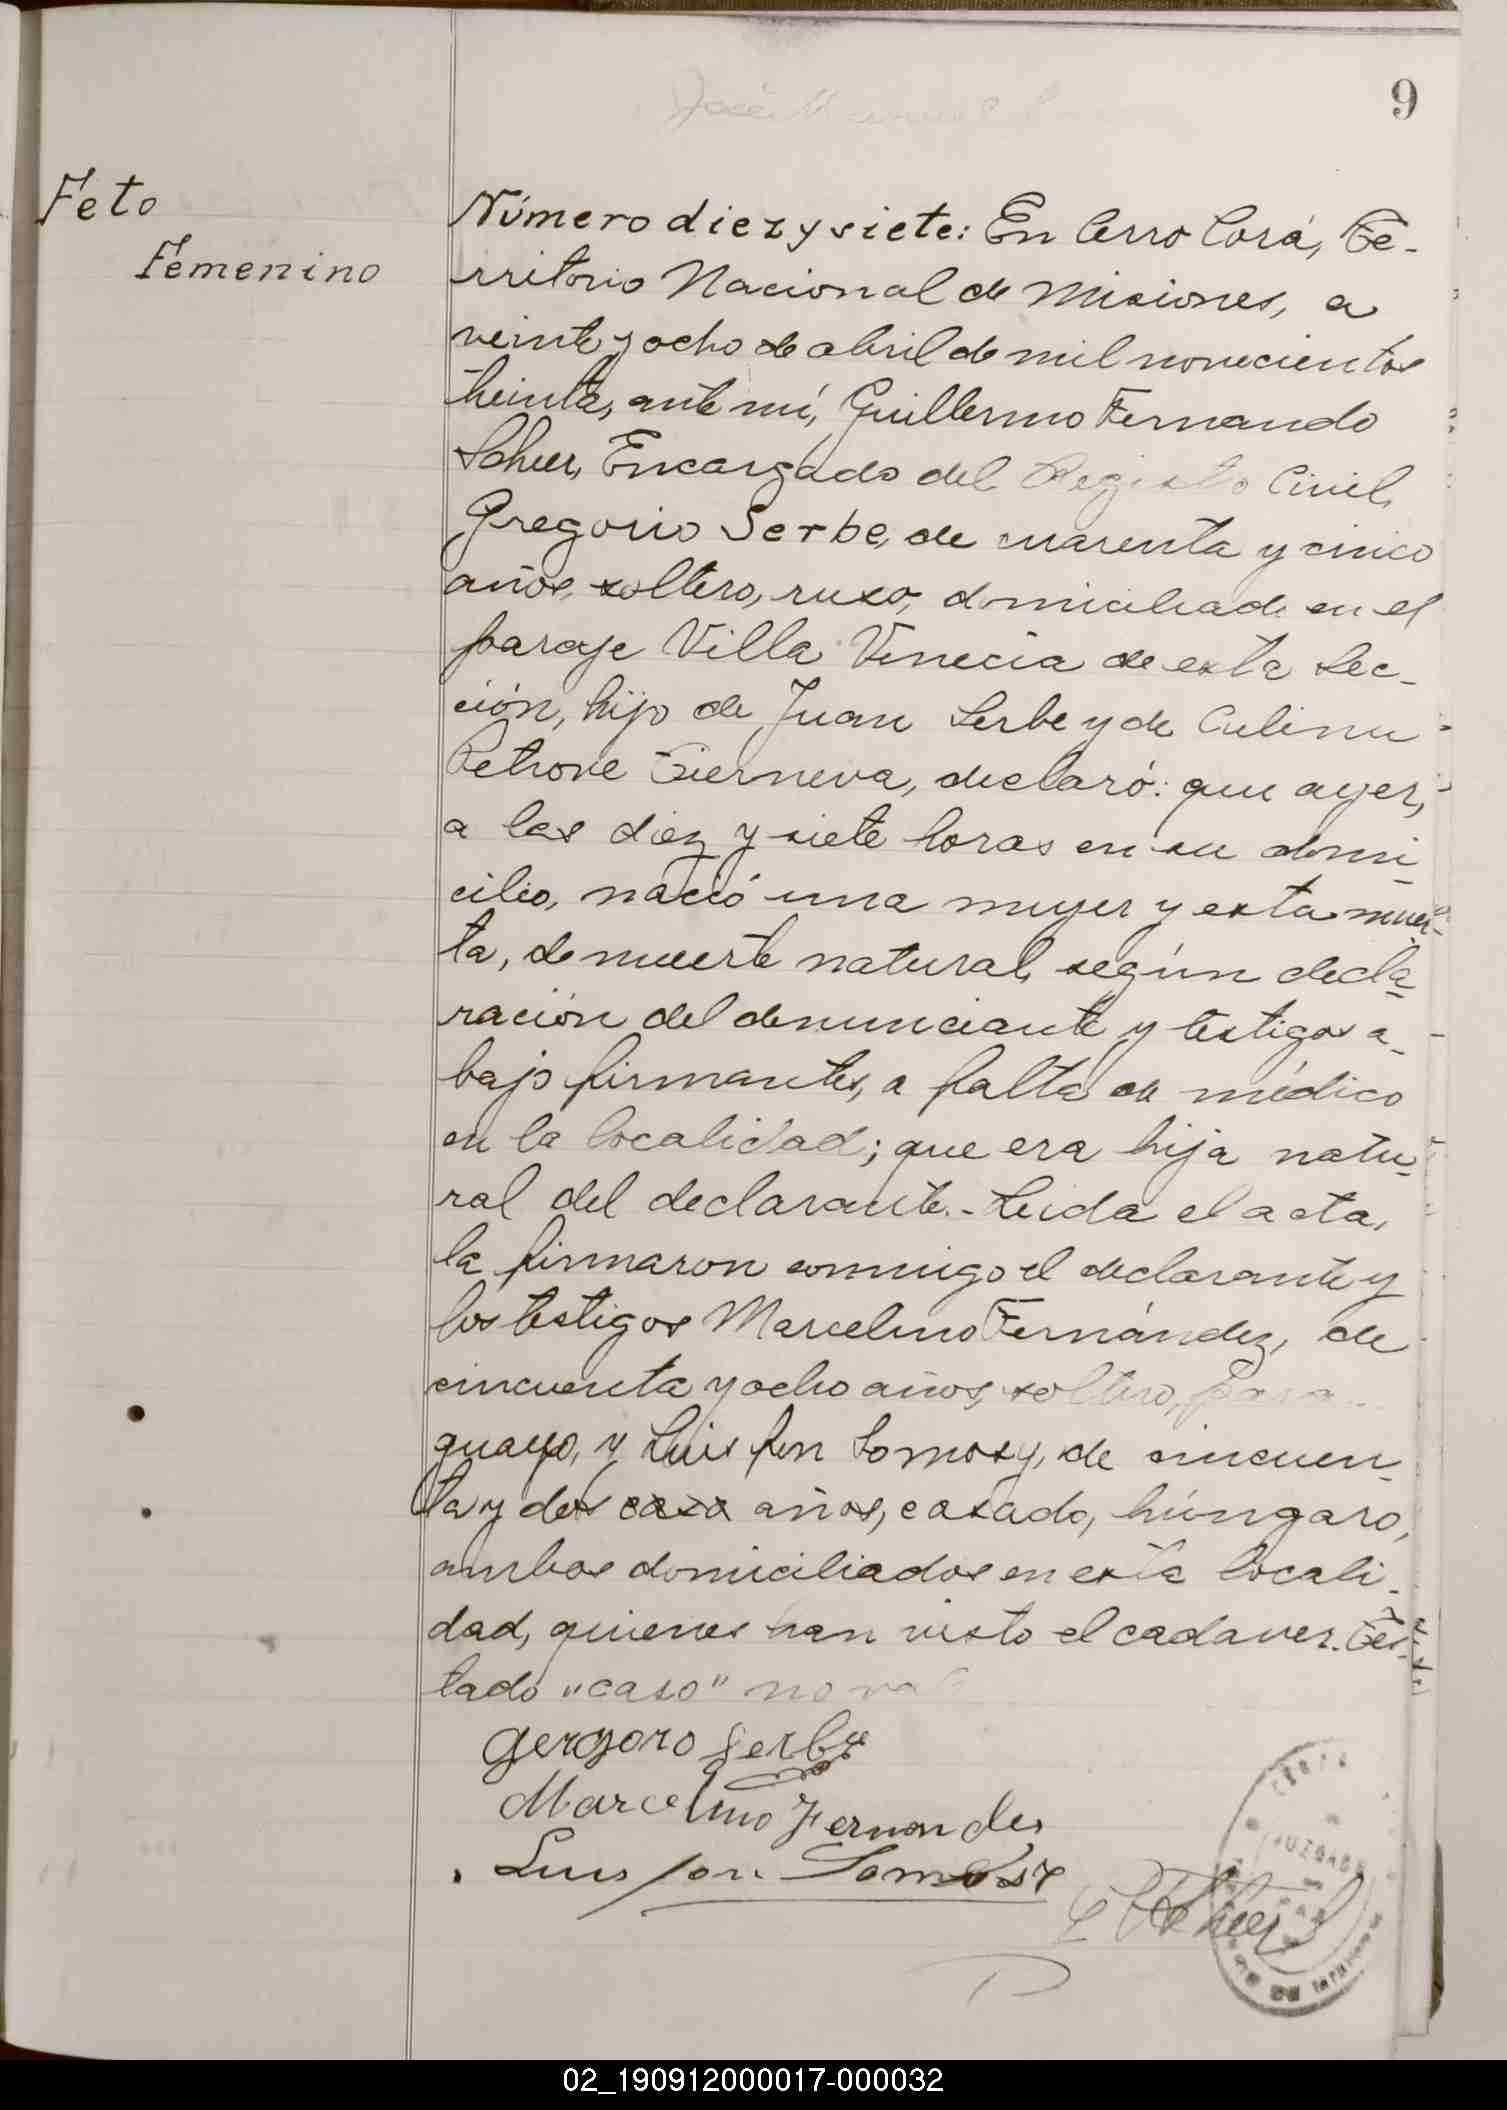 9
Feto
Femenino
Número diez y siete: En Cerro Corá, Te-
rritorio Nacional de Misiones, a
veinte y ocho de abril de mil novecientos
treinta, ante mí, Guillermo Fernando
Scheer, Encargado del Registro Civil,
Gregorio Serbe, de cuarenta y cinco
años, soltero, ruso, domiciliado en el
paraje Villa Venecia de esta Sec-
ción, hijo de Juan Serbe y de
Petrove, declaró: que ayer,
a las diez y siete horas en su domi-
cilio, nació una mujer y esta muer-
ta, de muerte natural, según decla-
ración del denunciante y testigos a-
bajo firmantes, a falta de médico
en la localidad; que era hija natu-
ral del declarante.- Leida el acta,
la firmaron conmigo el declarante y
los testigos Marcelino Fernández, de
cincuenta y ocho años, soltero, para-
guayo, y Luis fon Somosy, de cincuen-
ta y dos caso años, casado, húngaro,
ambos domiciliados en esta locali-
dad, quienes han visto el cadaver. Tes-
tado "caso" no vale
Gergoro Serbe
Marcelino Fernandes
Luis fon Somossy
JUZGADO
DE
PAZ
02_190912000017-000032